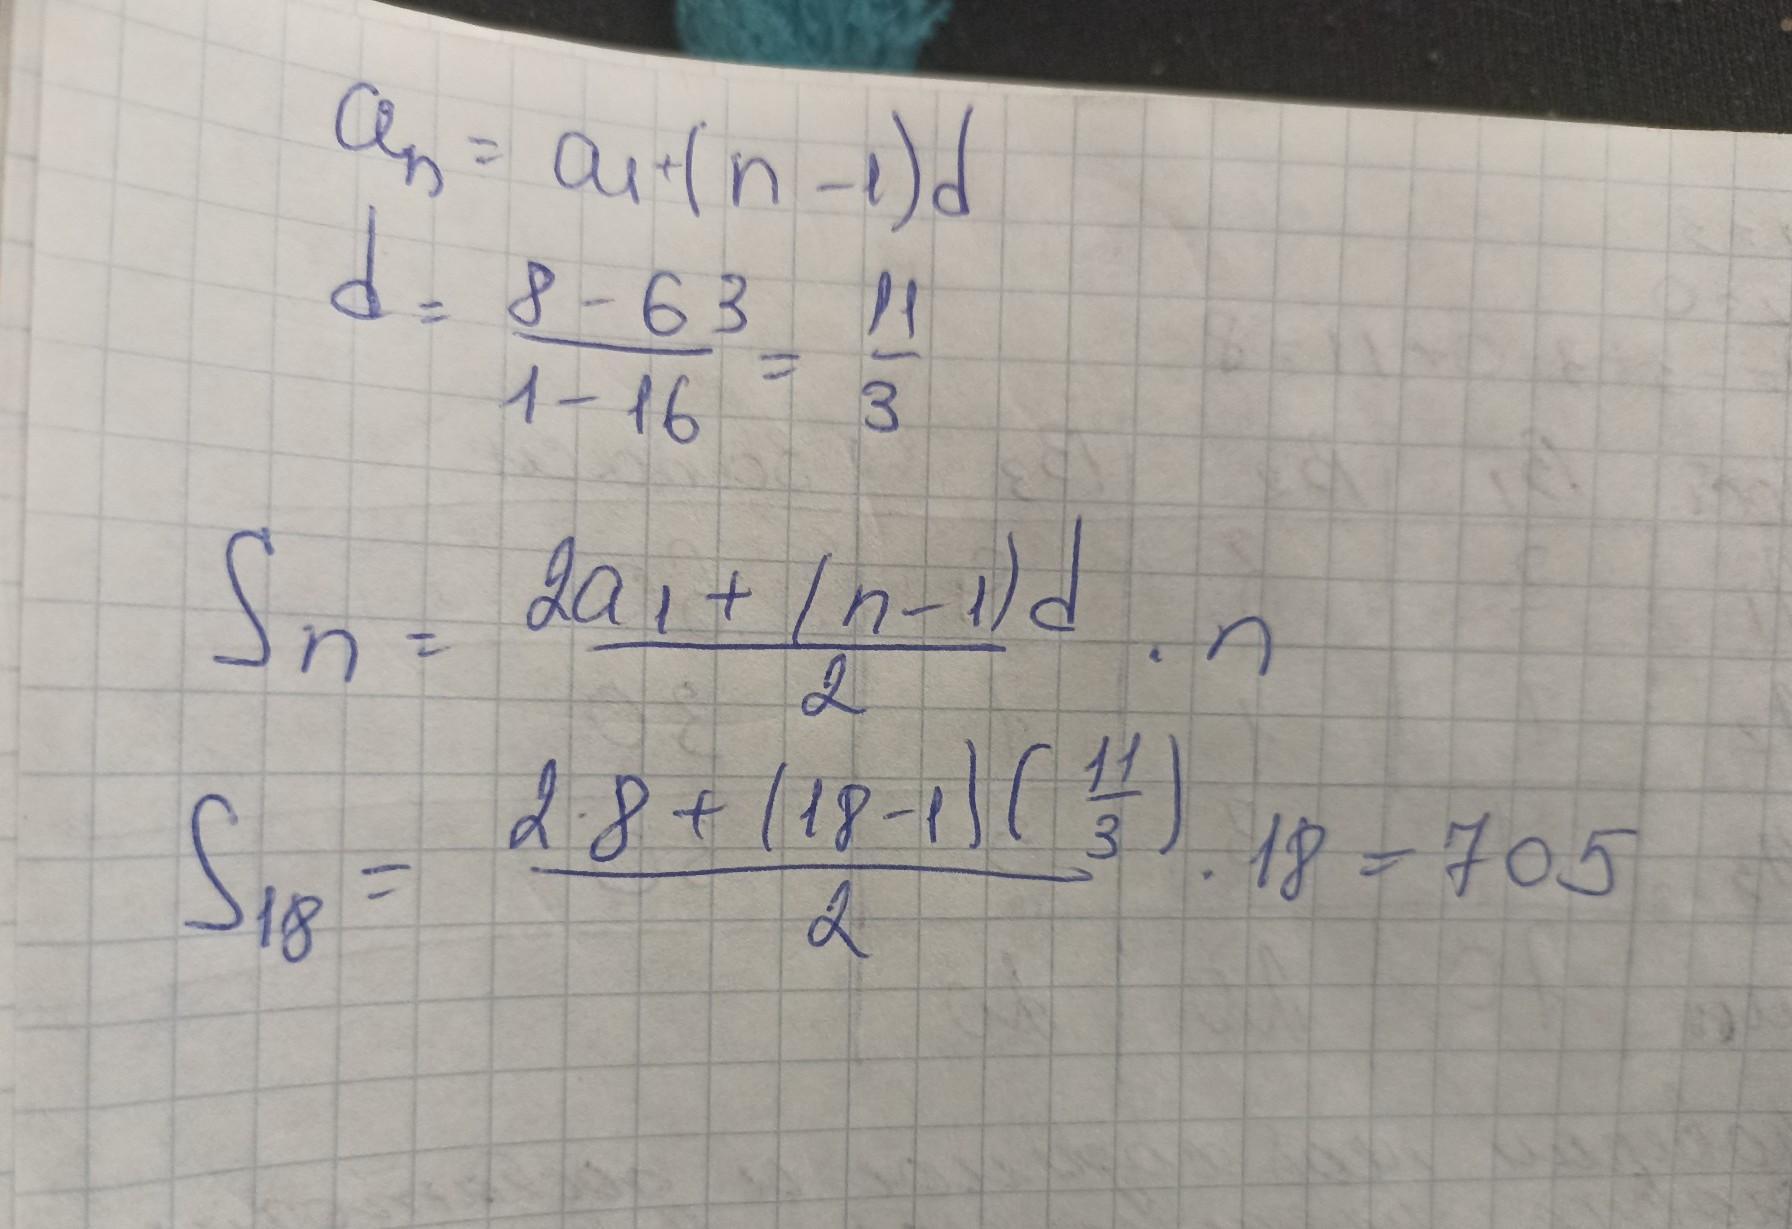 aₙ = a₁+(n-1)d
d = (8-63)/(1-16) = 11/3
Sₙ = (2a₁+(n-1)d)/2 · n
S₁₈ = (2·8+(18-1)(11/3))/2 · 18 = 705